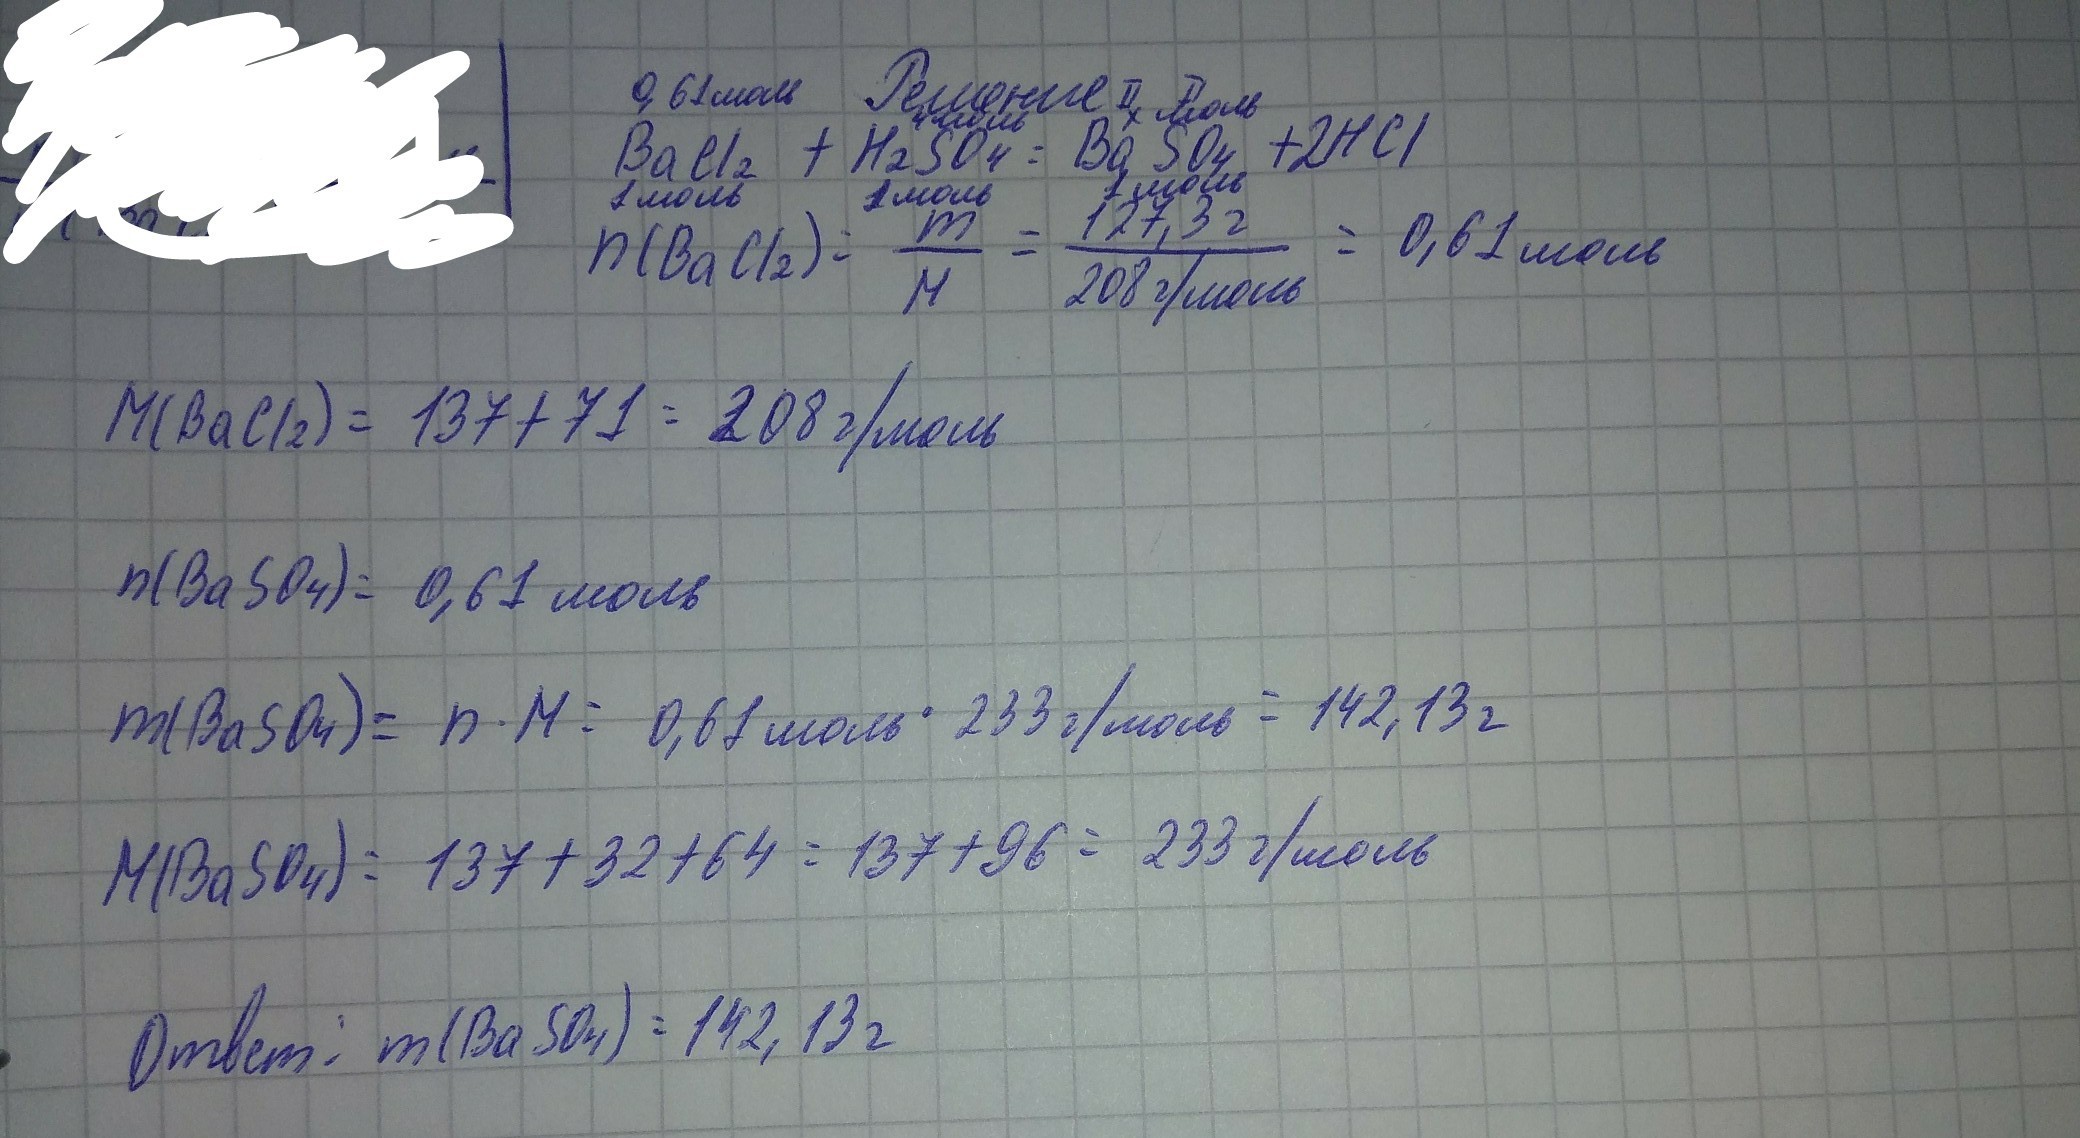 0,61 моль Решение II II
4 моль x моль
BaCl2 + H2SO4 = BaSO4 + 2HCl
1 моль 1 моль 1 моль
n(BaCl2) = m/M = 127,3 г/208 г/моль = 0,61 моль
M(BaCl2) = 137 + 71 = 208 г/моль
n(BaSO4) = 0,61 моль
m(BaSO4) = n · M = 0,61 моль · 233 г/моль = 142,13 г
M(BaSO4) = 137 + 32 + 64 = 137 + 96 = 233 г/моль
Ответ: m(BaSO4) = 142,13 г